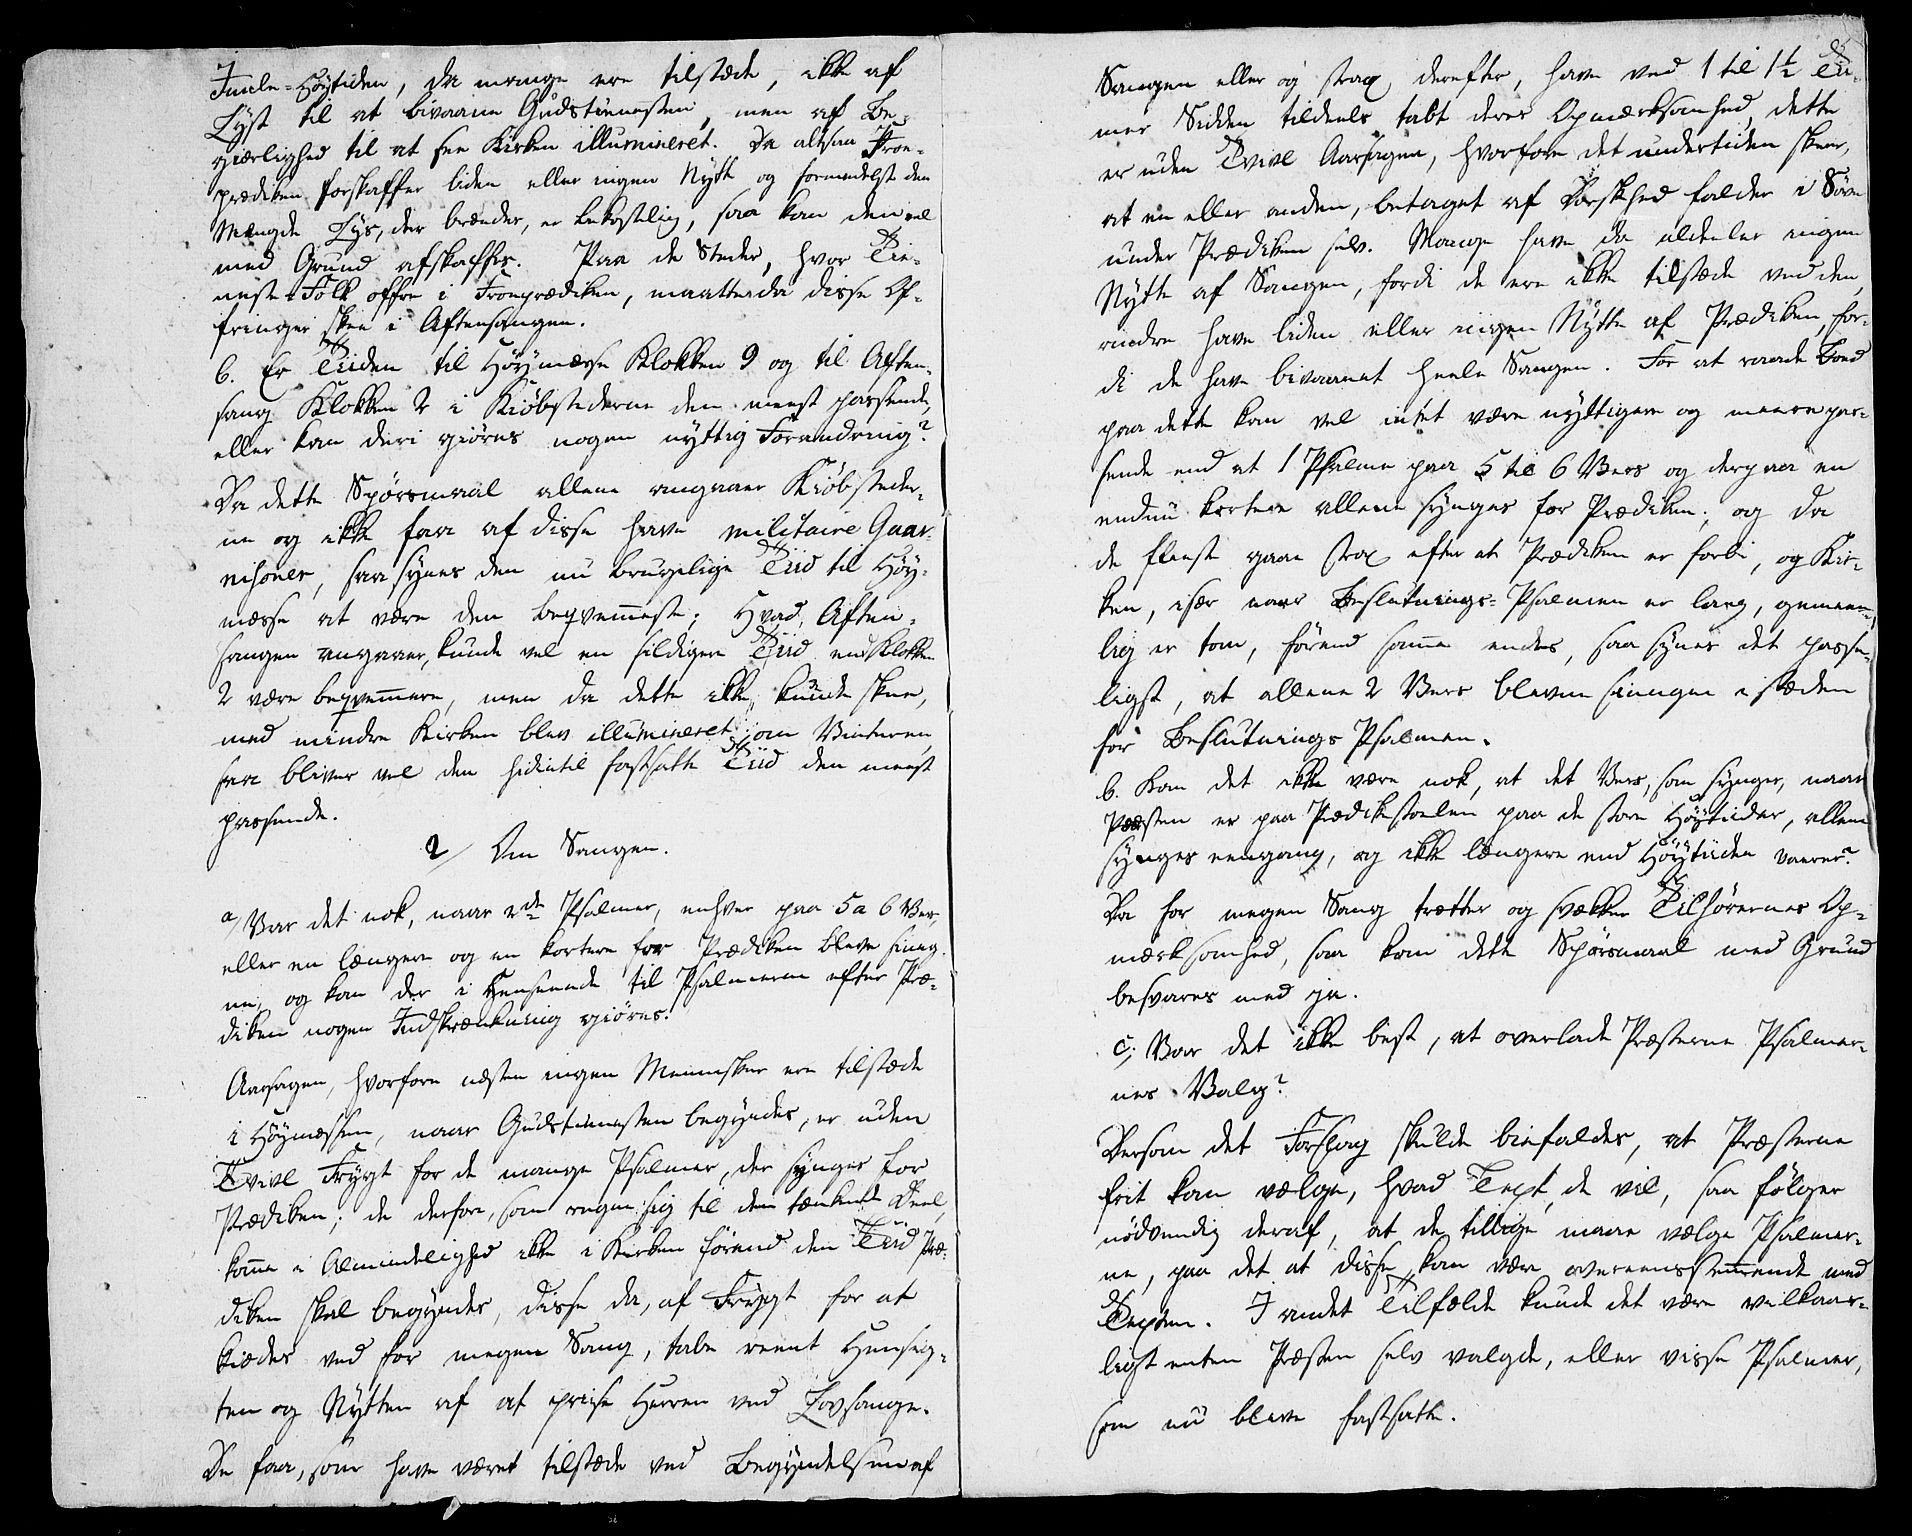 Juule-Höytiden, da mange ere tilstede, ikke af
Lyst til at bivaane Gudstienesten, men af Be-
giærlighed til at see Kirken illumineret. Da altsaa Froe-
prædiken forskaffer liden eller ingen Nytte og formedelst den
Mængde Lys, der brænder, er bekostelig, saa kan den vel
med Grund afskaffes. Paa de Steder, hvor Tie-
neste-Folk offre i Froeprædiken, maatte da disse Of-
fringer skee i Aftensangen.
b. Er Tiiden til Höymæsse Klokken 9 og til Aften-
sang Klokken 2 i Kiöbstederne den meest passende,
eller kan deri giöres nogen nyttig Forandring?
Da dette Spörsmaal allene angaaer Kiöbsteder-
ne og ikke faa af disse have militaire Gaar-
nisoner, saa synes den nu brugelige Tiid til Höy-
mæsse at være den beqvemmeste; Hvad Aften-
sangen angaaer, kunde vel en sildigere Tiid end Klokken
2 være beqvemmere, men da dette ikke kunde skee,
med mindre Kirken blev illumineret om Vinteren,
saa bliver vel den hidintil fastsatte Tiid den meest
passende.
2/ Om Sangen.
a/ Var det nok, naar 2de Psalmer, enhver paa 5 a 6 Vers,
eller en længere og en kortere for Prædiken bleve siung-
ne, og kan der i Henseende til Psalmerne efter Præ-
diken nogen Indskrænkning giöres.
Aarsagen, hvorfore næsten ingen Mennesker ere tilstæde
i Höymessen, naar Gudstienesten begyndes, er uden
Tvivl Frygt for de mange Psalmer, der synges for
Prædiken; de derfore, som regne sig til den tænkende Deel,
komme i Almindelighed ikke i Kirken förend den Tiid Præ-
diken skal begyndes, disse da, af Frygt for at
kiedes ved for megen Sang, tabe reent Hensig-
ten og Nytten af at prise Herren ved Lovsange.
De faa, som have været tilstæde ved Begyndelsen af
Sangen eller og strax derefter, have ved 1 til 1½ Ti-
mes Sidden tildeels tabt deres Opmærksomhed, dette
er uden Tvivl Aarsagen, hvorfore det undertiden skeer,
at en eller anden, betaget af Dorskhed falder i Sövn
under Prædiken selv. Mange have da aldeles ingen
Nytte af Sangen, fordi de ere ikke tilstæde ved den,
andre have liden eller ingen Nytte af Prædiken, for-
di de have bivaanet heele Sangen. For at raade Bod
paa dette kan vel intet være nyttigere og meere pas-
sende end at 1 Psalme paa 5 til 6 Vers og derpaa en
endnu kortere allene synges for Prædiken; og da
de fleeste gaae strax efter at Prædiken er forbi, og Kir-
ken, især naar Beslutnings-Psalmen er lang, gemeen-
lig er tom, förend samme endes, saa synes det passe-
ligst, at allene 2 Vers bleven siungen i stæden
for Beslutnings Psalmen.
b. Kan det ikke være nok, at det Vers, som synges, naar
Præsten er paa Prædikestoelen paa de store Höytiider, allene
synges eengang, og ikke længere end Höytiiden vaerer?
Da for megen Sang trætter og svækker Tilhörernes Op-
mærksomhed, saa kan dette Spörsmaal med Grund
besvares med ja.
c; Var det ikke best, at overlade Præsterne Psalmer-
nes Valg?
Dersom det Forslag skulde biefaldes, at Præsterne
frit kan vælge, hvad Text, de vil, saa fölger
nödvendig deraf, at de tillige maae vælge Psalmer-
ne, paa det at disse kan være overeensstemmende med
Texten. I andet Tilfælde kunde det være vilkaar-
ligt enten Præsten selv valgde, eller visse Psalmer,
som nu bleve fastsatte.